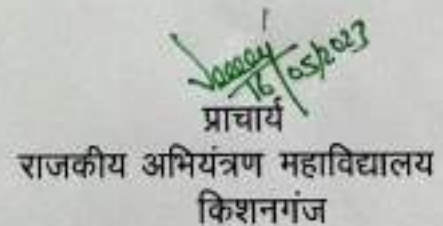 16/05/2023
प्राचार्य
राजकीय अभियंत्रण महाविद्यालय
किशनगंज